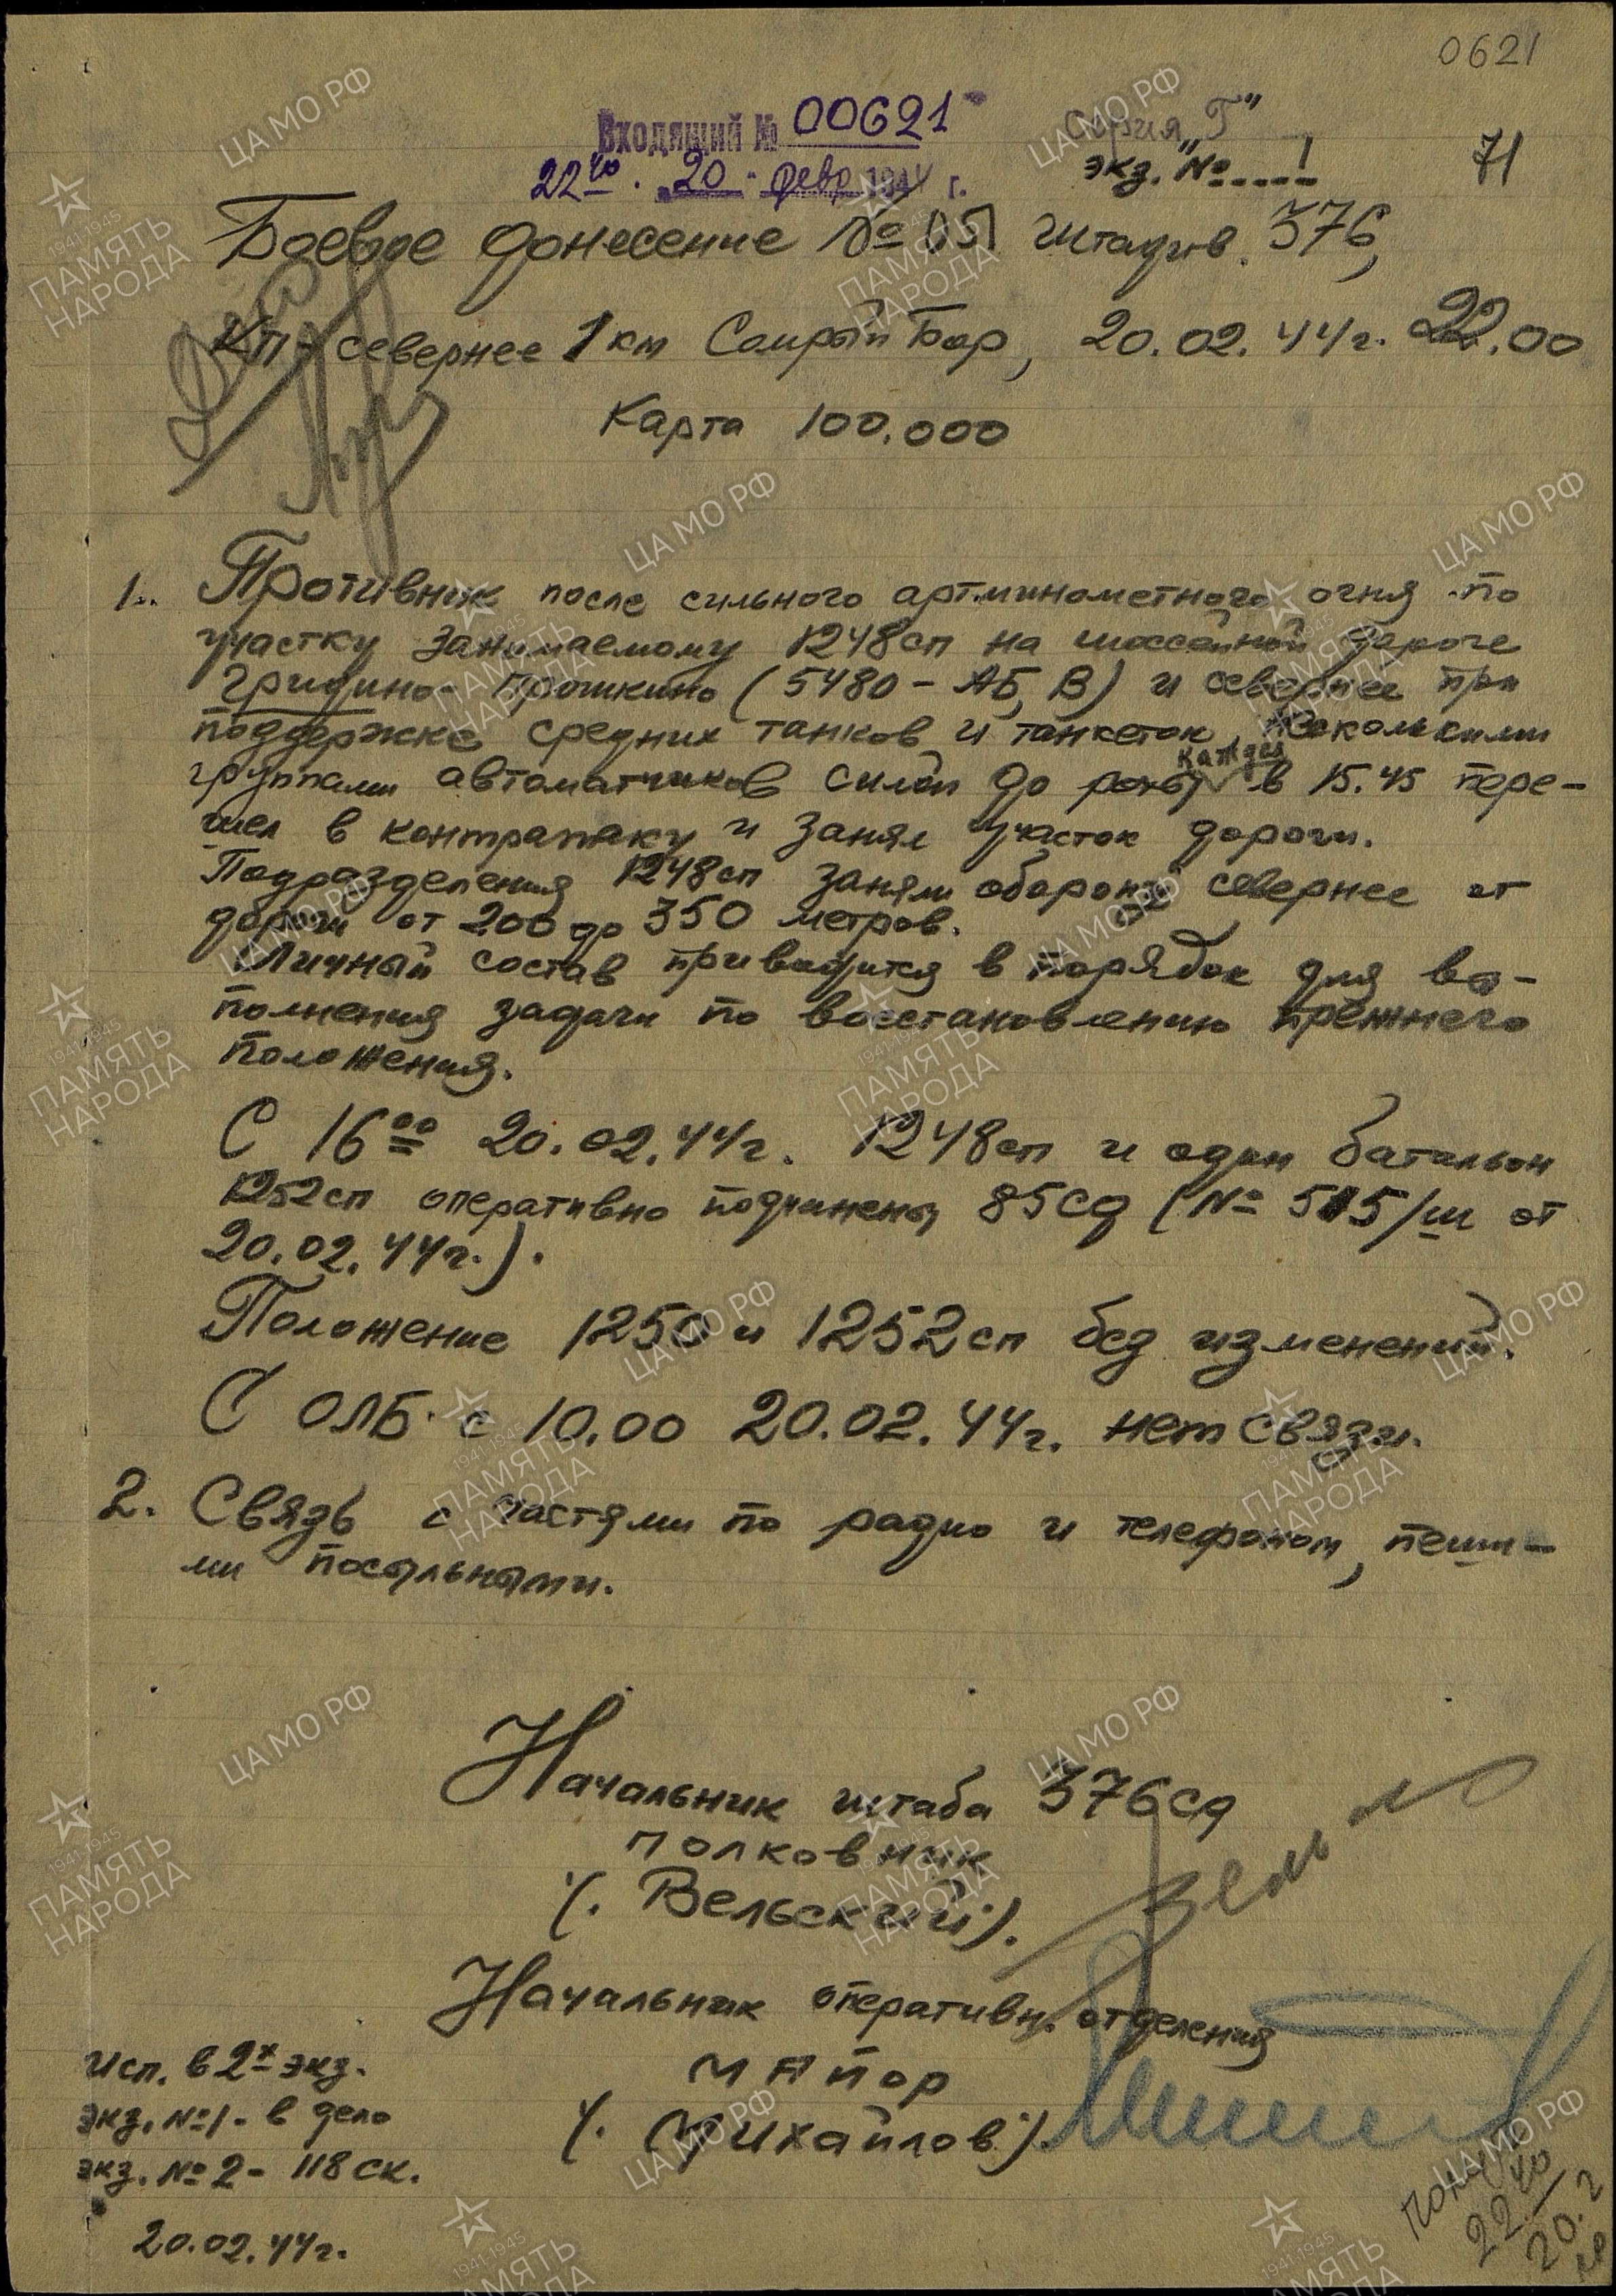 0621
Входящий № 00621
Серия „Г"
экз. № 1
71
22 40. 20. февр 1944 г.
Боевое донесение № 051 штадив. 376,
КП - севернее 1 км Сомрый Бор, 20.02.44г. 22.00
Карта 100.000
1. Противник после сильного артминометного огня по
участку занимаемому 1248сп на шоссейной дороге
Гридино - Прошкино (5480 - АБ, В) и севернее при
поддержке средних танков и танкеток, несколькими
группами автоматчиков силой до роты кажды в 15.45 пере-
шел в контратаку и занял участок дороги.
Подразделения 1248сп заняли оборону севернее от
дороги от 200 до 350 метров.
Личный состав приводится в порядок для вы-
полнения задачи по восстановлению прежнего
положения.
С 16 00 20.02.44г. 1248сп и один батальон
1252сп оперативно подчинены 85сд (№ 515/ш от
20.02.44г.).
Положение 1250 и 1252сп без изменений.
С ОЛБ с 10.00 20.02.44г. нет связи.
2. Связь с частями по радио и телефоном, пеши-
ми посыльными.
Начальник штаба 376сд
полковник
(. Вельский).
Начальник оперативн. отделения
майор
(. Михайлов).
исп. в 2х экз.
экз. №1 - в дело
экз. №2 - 118 ск.
20.02.44г.
22 40
20.2
ЦА МО РФ
1941-1945
ПАМЯТЬ
НАРОДА